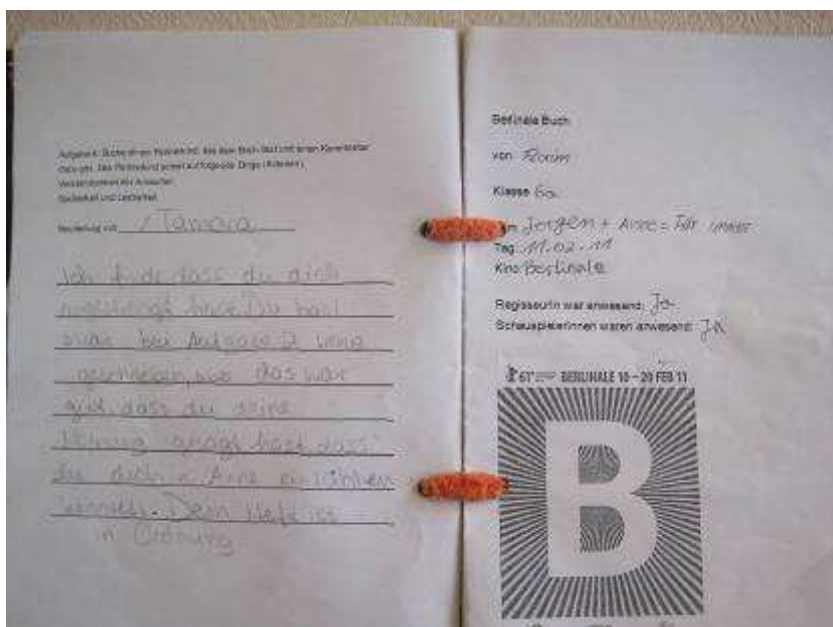 Aufgabe 6: Suche dir ein Partnerkind, das dein Buch liest und einen Kommentar
dazu gibt. Das Partnerkind achtet auf folgende Dinge (Kriterien):
Sauberkeit und Lesbarkeit
Tamara
Ich finde dass du dich
angestrengt hast. Du hast
zwar bei Aufgabe 2 wenig
geschrieben, aber das war
gut, dass du deine
Meinung gesagt hast, dass
du dich in Anne einfühlen
konntest. Dein Heft ist
in Ordnung
Berlinale Buch
von
Klasse 6a
Jørgen + Anne = Für immer
Tag 11.02.11
Kino Berlinale
RegisseurIn war anwesend: Ja
SchauspielerInnen waren anwesend: Ja
61 BERLINALE 10-20 FEB 11
B